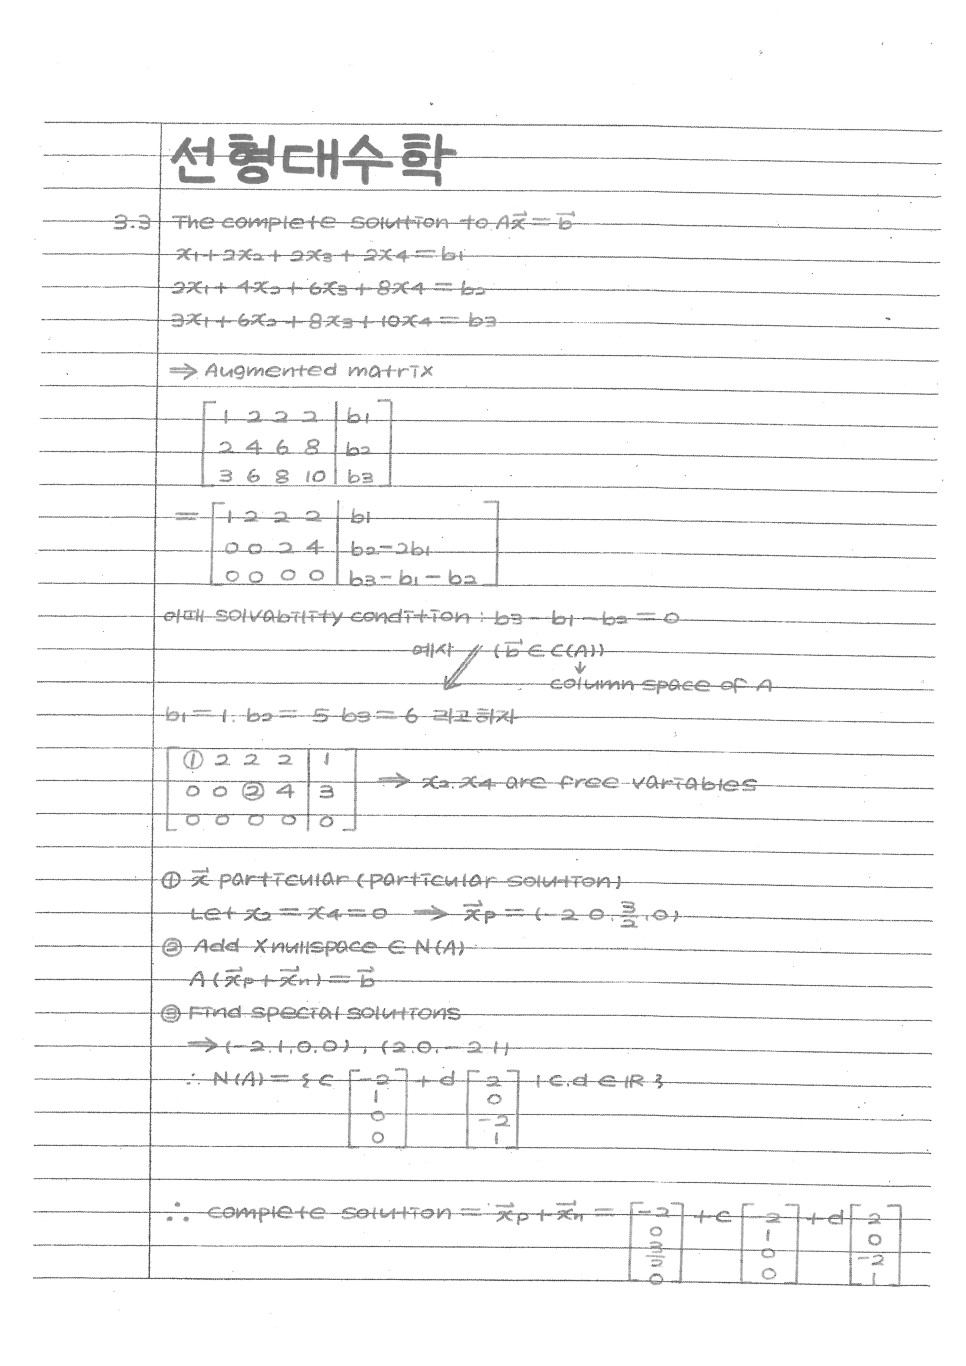 선형대수학
3.3 The complete solution to Ax⃗ = b⃗
x1 + 2x2 + 2x3 + 2x4 = b1
2x1 + 4x2 + 6x3 + 8x4 = b2
3x1 + 6x2 + 8x3 + 10x4 = b3
⇒ Augmented matrix
[ 1 2 2 2 | b1 ]
2 4 6 8 | b2
3 6 8 10 | b3
= [ 1 2 2 2 | b1 ]
0 0 2 4 | b2-2b1
0 0 0 0 | b3-b1-b2
이때 solvability condition : b3 - b1 - b2 = 0
예시 (b⃗ ∈ C(A))
↓
column space of A
b1 = 1, b2 = 5 b3 = 6 라고하자
[ ① 2 2 2 | 1 ]
0 0 ② 4 | 3 ⇒ x2, x4 are free variables
0 0 0 0 | 0
① x⃗ particular (particular solution)
Let x2 = x4 = 0 ⇒ x⃗p = (-2 0, 3/2, 0)
② Add Xnullspace ∈ N(A)
A(x⃗p + x⃗n) = b⃗
③ Find special solutions
⇒ (-2, 1, 0, 0), (2, 0, -2 1)
∴ N(A) = { c [ -2 ] + d [ 2 ] | c, d ∈ ℝ }
1 0
0 -2
0 1
∴ complete solution = x⃗p + x⃗n = [ -2 ] + c [ -2 ] + d [ 2 ]
0 1 0
3/2 0 -2
0 0 1